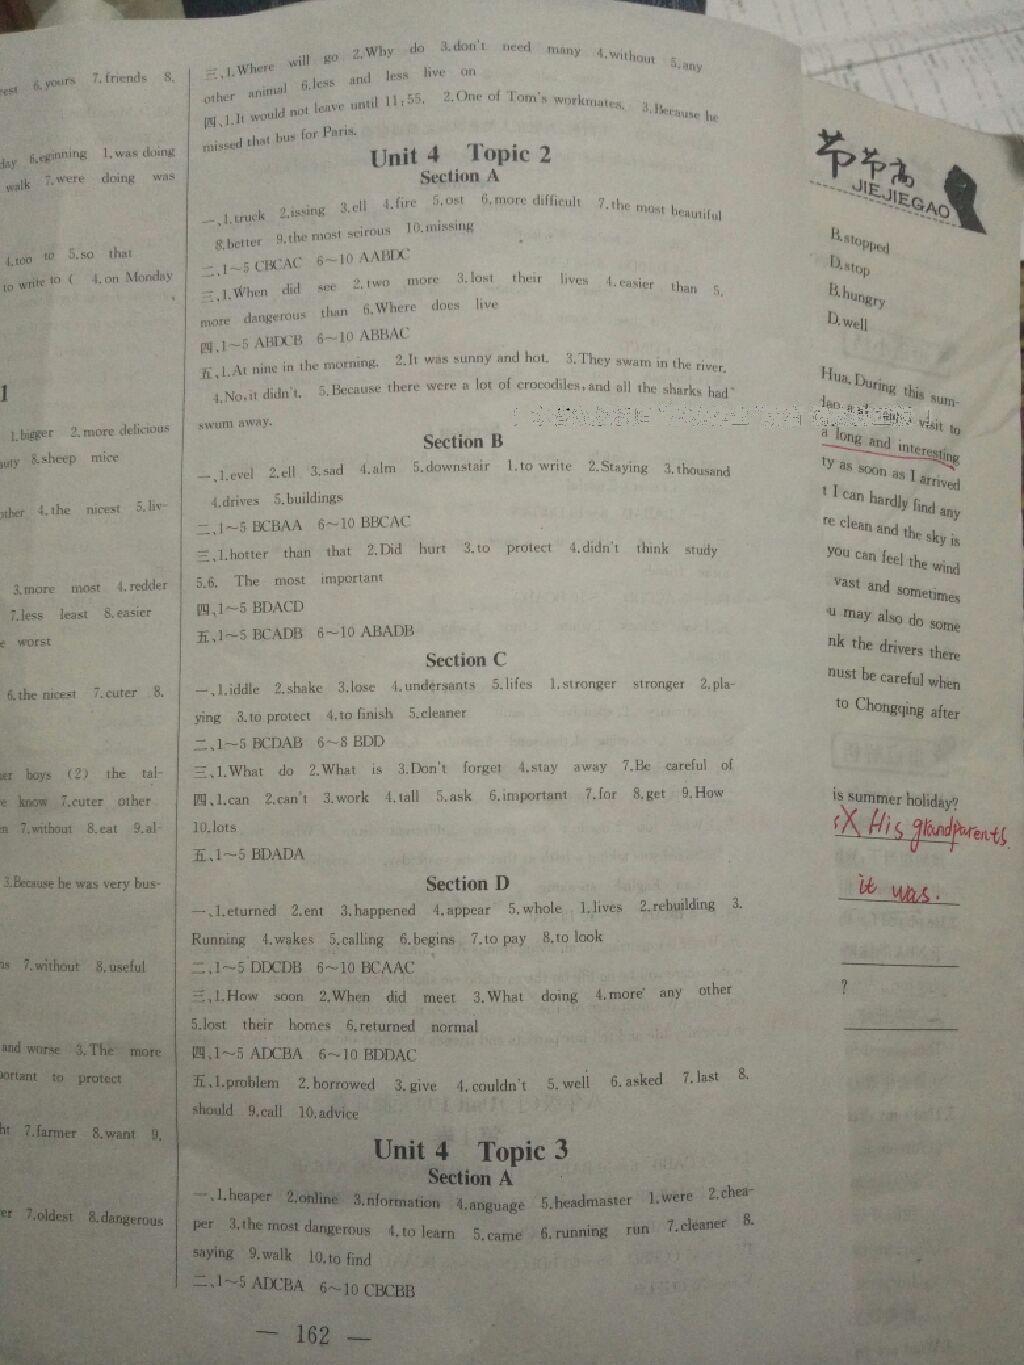 rest 6.yours 7.friends 8.
day 6.eginning 1.was doing
walk 7.were doing was
4.too to 5.so that
to write to ( 4.on Monday
1
1.bigger 2.more delicious
8.sheep mice
other 4.the nicest 5.liv-
3.more most 4.redder
7.less least 8.easier
worst
6.the nicest 7.cuter 8.
boys (2) the tal-
know 7.cuter other
7.without 8.eat 9.al-
3.Because he was very bus-
7.without 8.useful
and worse 3.The more
portant to protect
7.farmer 8.want 9.
7.oldest 8.dangerous
三、1.Where will go 2.Why do 3.don't need many 4.without 5.any
other animal 6.less and less live on
四、1.It would not leave until 11:55. 2.One of Tom's workmates. 3.Because he
missed that bus for Paris.
Unit 4 Topic 2
Section A
一、1.truck 2.issing 3.ell 4.fire 5.ost 6.more difficult 7.the most beautiful
8.better 9.the most seirous 10.missing
二、1~5 CBCAC 6~10 AABDC
三、1.When did see 2.two more 3.lost their lives 4.easier than 5.
more dangerous than 6.Where does live
四、1~5 ABDCB 6~10 ABBAC
五、1.At nine in the morning. 2.It was sunny and hot. 3.They swam in the river.
4.No,it didn't. 5.Because there were a lot of crocodiles,and all the sharks had
swum away.
Section B
一、1.evel 2.ell 3.sad 4.alm 5.downstair 1.to write 2.Staying 3.thousand
4.drives 5.buildings
二、1~5 BCBAA 6~10 BBCAC
三、1.hotter than that 2.Did hurt 3.to protect 4.didn't think study
5.6. The most important
四、1~5 BDACD
五、1~5 BCADB 6~10 ABADB
Section C
一、1.iddle 2.shake 3.lose 4.undersants 5.lifes 1.stronger stronger 2.pla-
ying 3.to protect 4.to finish 5.cleaner
二、1~5 BCDAB 6~8 BDD
三、1.What do 2.What is 3.Don't forget 4.stay away 7.Be careful of
四、1.can 2.can't 3.work 4.tall 5.ask 6.important 7.for 8.get 9.How
10.lots
五、1~5 BDADA
Section D
一、1.eturned 2.ent 3.happened 4.appear 5.whole 1.lives 2.rebuilding 3.
Running 4.wakes 5.calling 6.begins 7.to pay 8.to look
二、1~5 DDCDB 6~10 BCAAC
三、1.How soon 2.When did meet 3.What doing 4.more any other
5.lost their homes 6.returned normal
四、1~5 ADCBA 6~10 BDDAC
五、1.problem 2.borrowed 3.give 4.couldn't 5.well 6.asked 7.last 8.
should 9.call 10.advice
Unit 4 Topic 3
Section A
一、1.heaper 2.online 3.nformation 4.anguage 5.headmaster 1.were 2.chea-
per 3.the most dangerous 4.to learn 5.came 6.running run 7.cleaner 8.
saying 9.walk 10.to find
二、1~5 ADCBA 6~10 CBCBB
— 162 —
节节高
JIEJIEGAO
B.stopped
D.stop
B.hungry
D.well
Hua. During this sum-
visit to
a long and interesting
ty as soon as I arrived
t I can hardly find any
re clean and the sky is
you can feel the wind
vast and sometimes
u may also do some
nk the drivers there
must be careful when
to Chongqing after
is summer holiday?
X His grandparents.
it was.
?